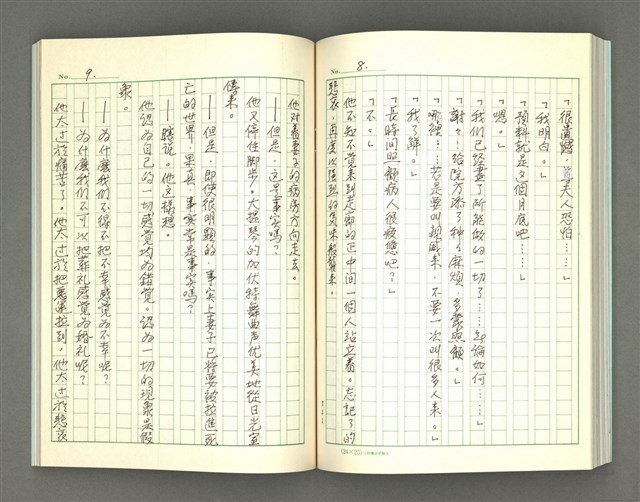 No. 8.
「很遺憾，尊夫人恐怕……」
「我明白。」
「預料就是這個月底吧……」
「嗯。」
「我们已經盡了所能做的一切了……無論如何……」
「謝々！給院方添了种々麻煩，多蒙照顧。」
「哪裡……若是要叫親戚来，不要一次叫很多人来。」
「我了解。」
「長時間照顧病人很疲憊吧？」
「不。」
他不知不覺来到走廊的正中間，一個人站立着。忘記了的
悲哀，再度以强烈的
No. 9.
他对着妻子的病房方向走去。
——但是，这是事实嗎？
他又停住脚步。大提琴的加伏特舞曲声优美地從日光室
傳来。
——但是，即使很明顯的，事实上妻子已將要被拉進死
亡的世界，果真，事实常是事实嗎？
——瞎说。他这樣想。
他認為自己的一切感覚均為錯覚。認為一切的现象是假
象。
——為什麼我们不得不把不幸感覚為不幸呢？
——為什麼我们不可以把葬礼感覚為婚礼呢？
他太过於痛苦了。他太过於把惡運拉到，他太过於悲哀
(24×25)